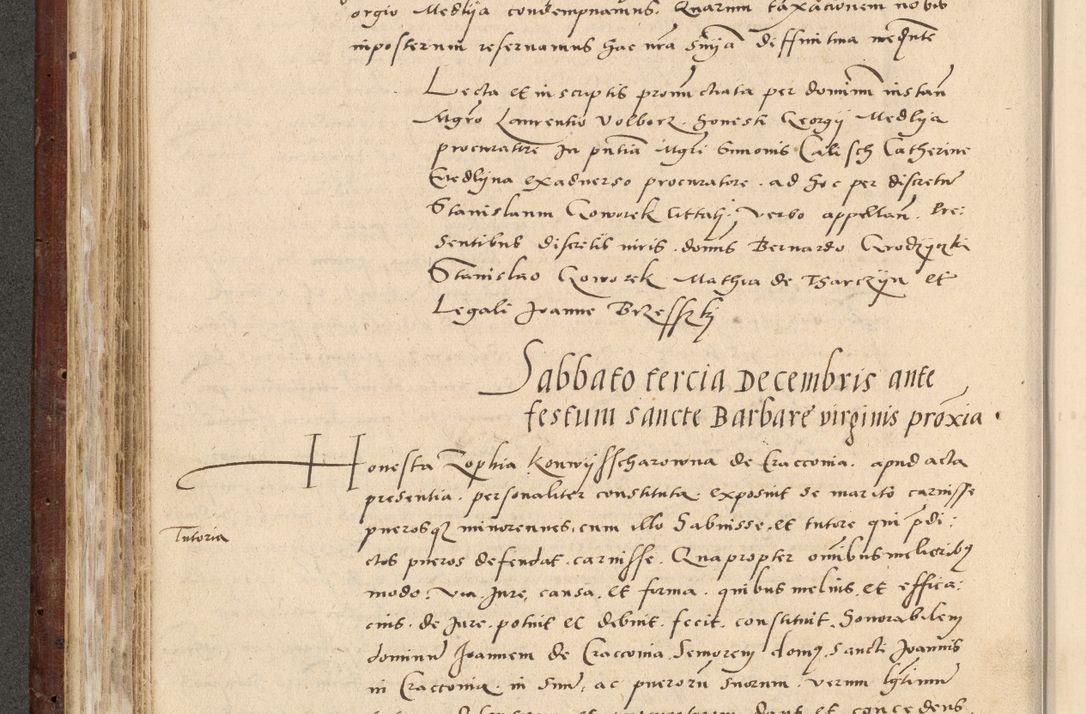 orgio Medlija condempnamus. Quarum taxacionem nobis
inposterum reseruamus hac nra snia diffinitiua mediante
Lecta et in scriptis pronunctiata per dominum instan
Mgro Laurentio Volborz. honesti Georgij Medlija
procuratore In pntia Mgri Simonis Calisch Catherine
Medlijna exaduerso procuratore. ad hoc per discretum
Stanislaum Goworek verbo appellan. Pre:
sentibus discretis uiris. domis Bernardo Grodzyczki
Stanislao Goworek Mathia de Tharczyn et
Legali Joanne Brzesszkj
Sabbato tercia Decembris ante
festum sancte Barbare virginis proxia.
Honesta Zophia Konwijsscharowna de Cracouia. apud acta
presentia. personaliter constituta. exposuit se marito caruisse
puerosq minorennes. cum illo habuisse. et tutore qui pdi:
ctos pueros defendat. caruisse. Quapropter omibus melioribq
modo. via. Jure, causa, et forma. quibus melius. et effica:
cius. de Jure. potuit et debuit. fecit. constituit. honorabilem
dominum Joannem de Cracouia. Seniorem domq sancti Joannis
in Cracouia. in suum, ac puerorum suorum. verum lgtimum
dant et concedens.
Tutoria